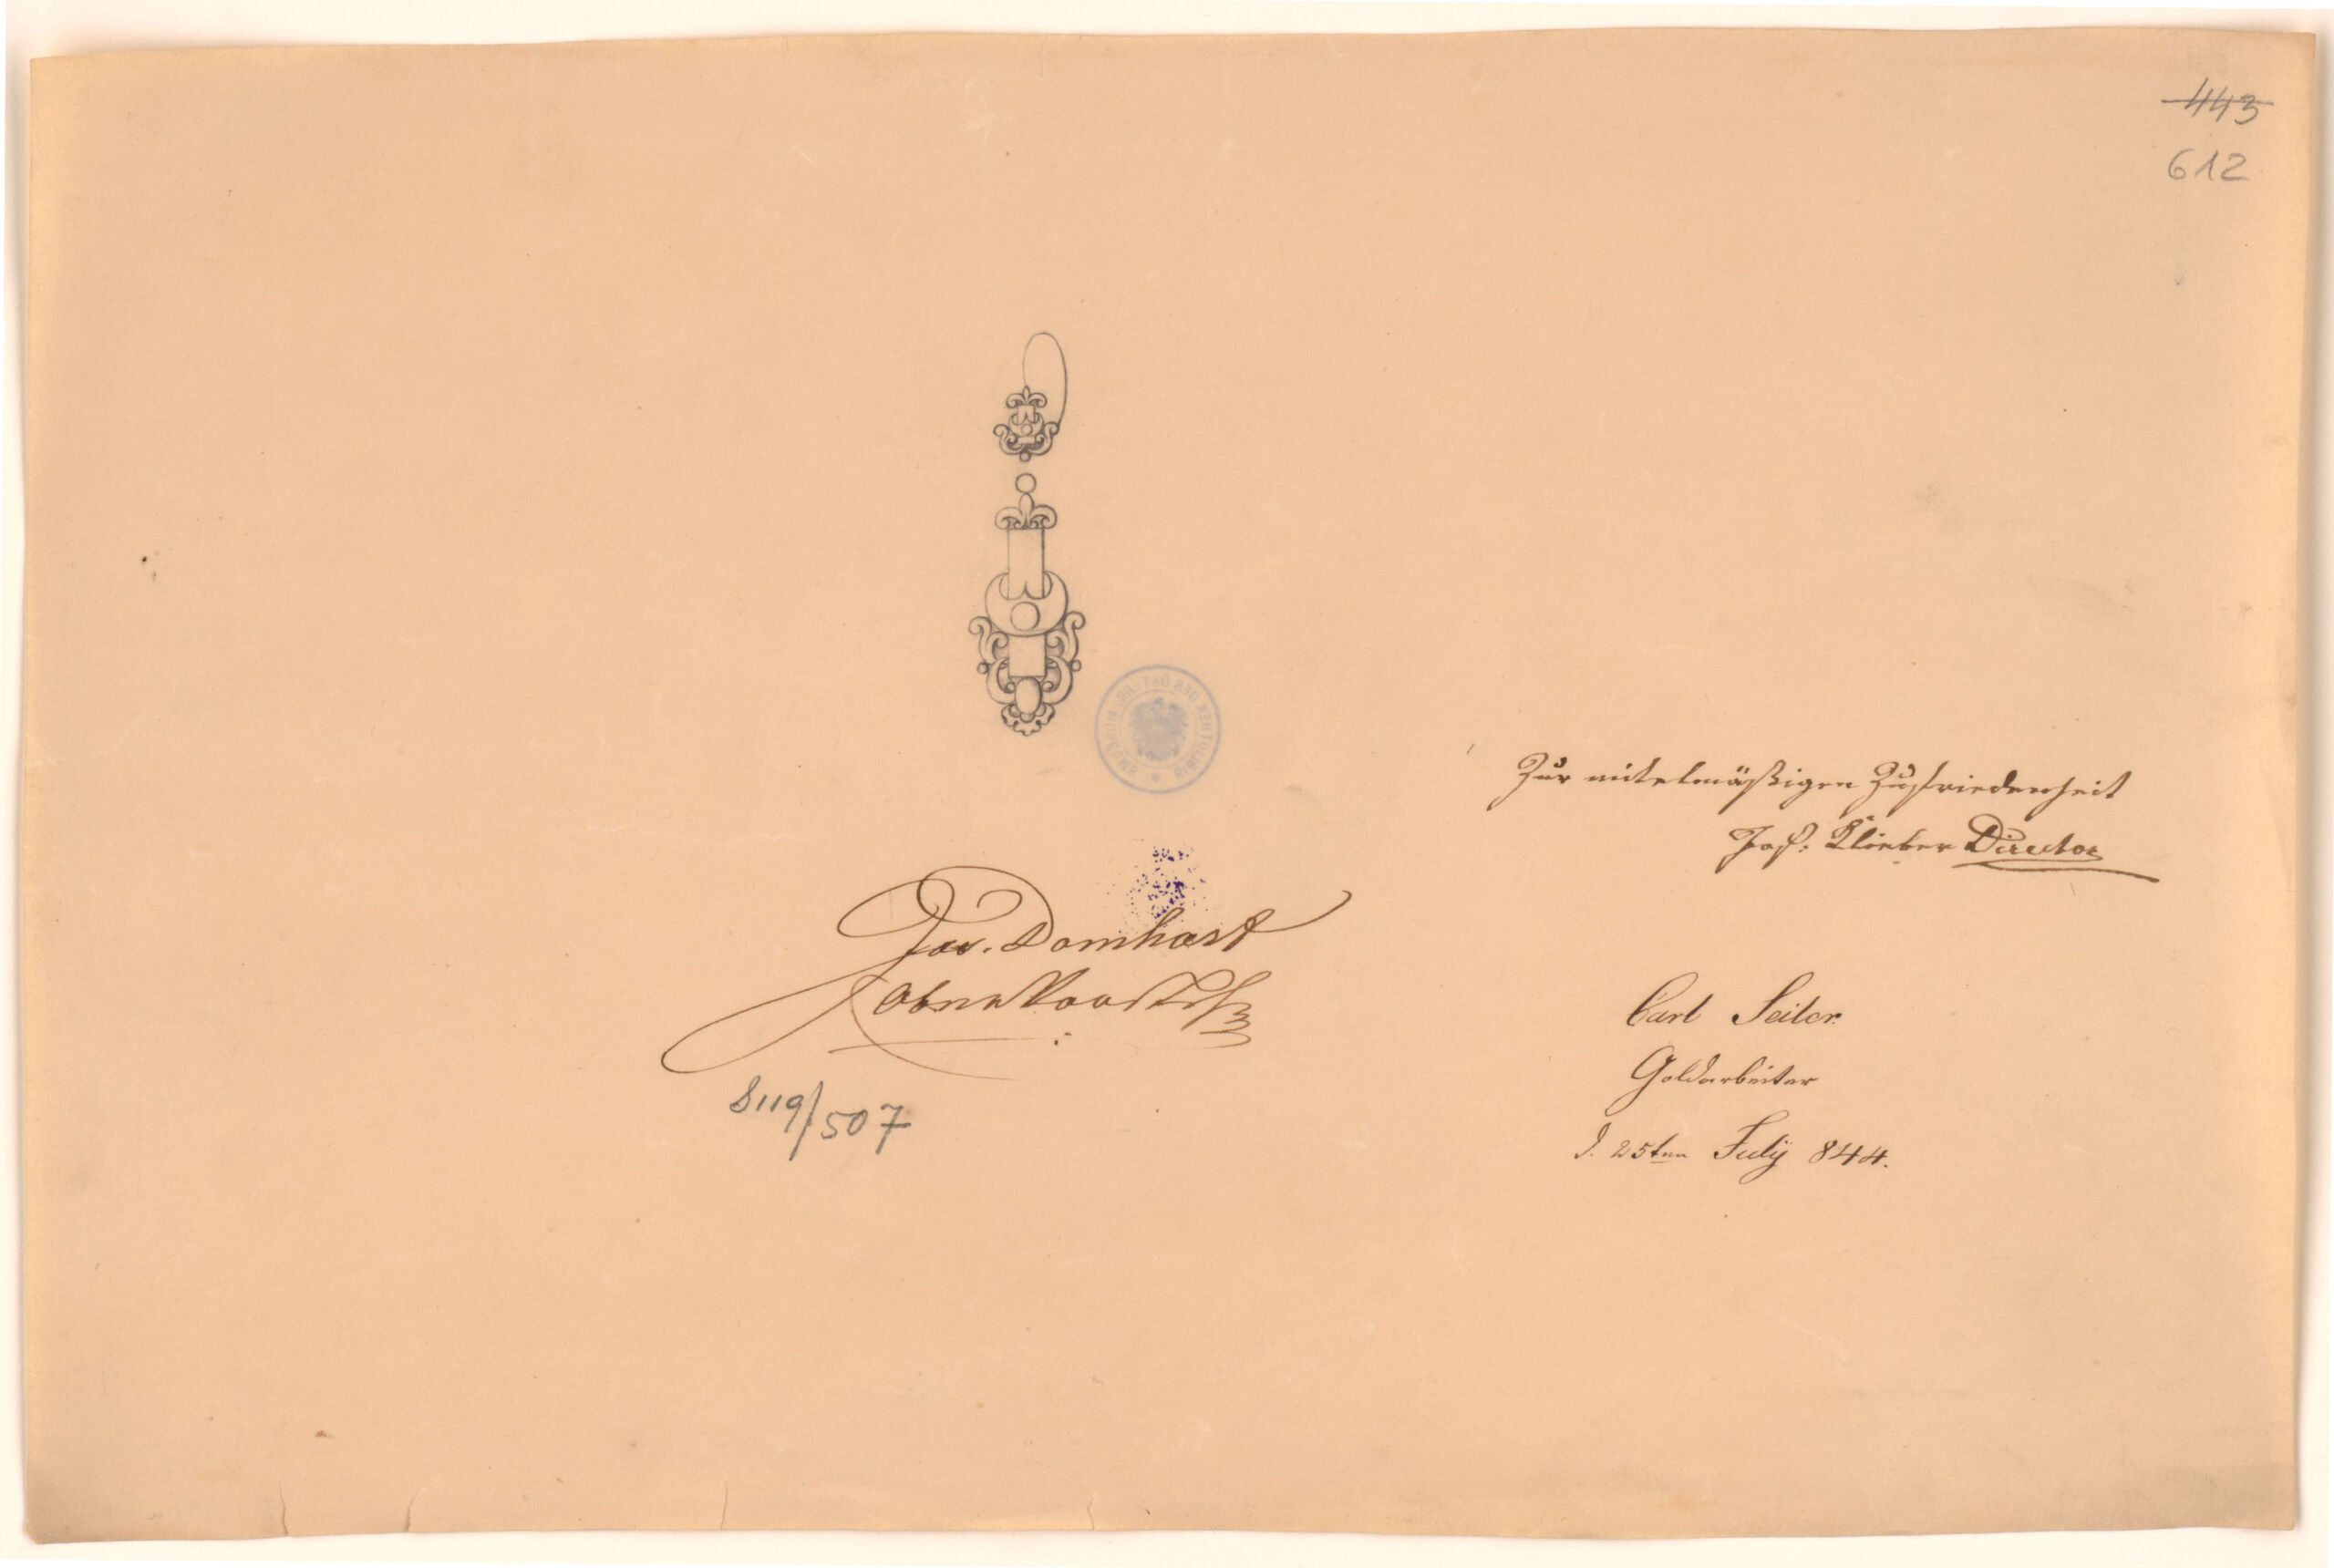 443
612
Zur mittelmäßigen Zufriedenheit
Jos. Klieber Director
Jos. Domhart
8119/507
Carl Seiler
Goldarbeiter
d. 25ten July 844.